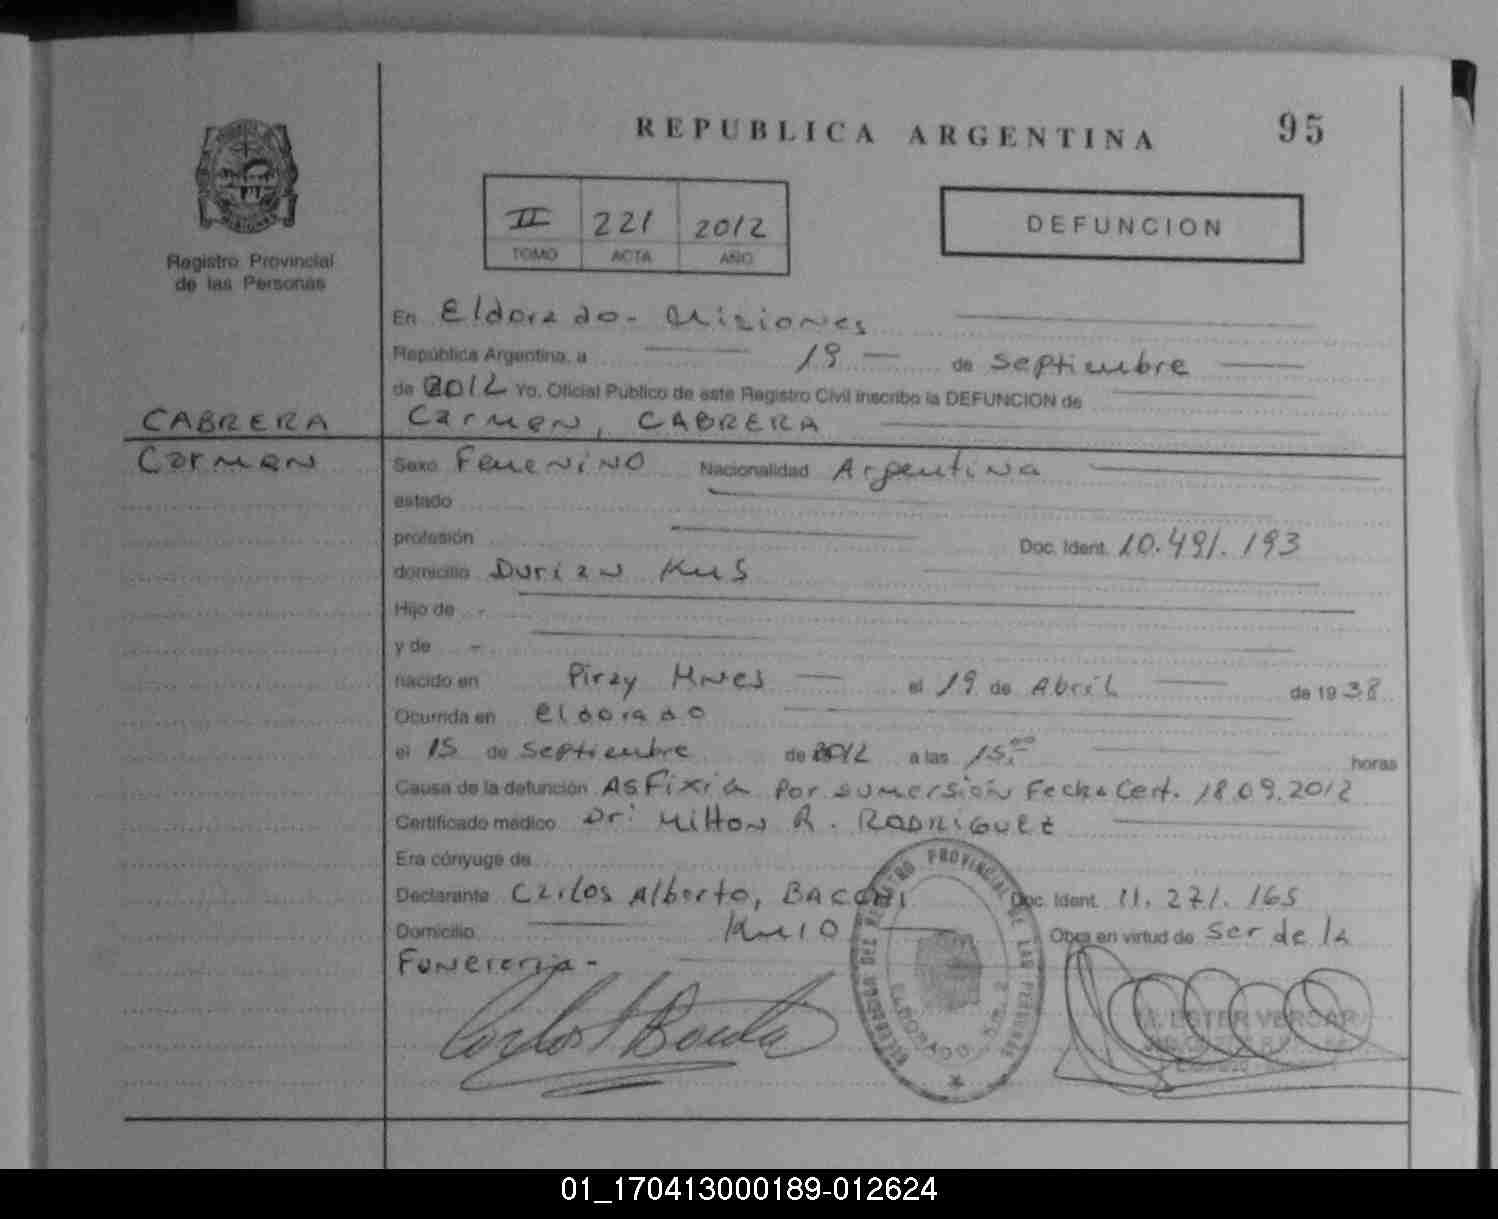 REPUBLICA ARGENTINA 95
II 221 2012
TOMO ACTA AÑO
DEFUNCION
Registro Provincial
de las Personas
En Eldorado - Misiones
República Argentina, a 19 de Septiembre
de 2012 Yo, Oficial Público de este Registro Civil inscribo la DEFUNCION de
CABRERA Carmen, CABRERA
Carmen Sexo Femenino Nacionalidad Argentina
estado
profesión Doc. Ident. 10.491.193
domicilio Km 5
Hijo de -
y de -
nacido en Piray Mnes el 19 de Abril de 1938
Ocurrida en eldorado
el 15 de Septiembre de 2012 a las 15,00 horas
Causa de la defunción Asfixia Por sumersión Fecha Cert. 18.09.2012
Certificado médico Dr: Milton R. RODRIGUEZ
Era cónyuge de
Declarante Carlos Alberto, Doc. Ident. 11.271.165
Domicilio Km 10 Obra en virtud de Ser de la
Funeraria -
REGISTRO PROVINCIAL DE LAS PERSONAS
ELDORADO
01_170413000189-012624